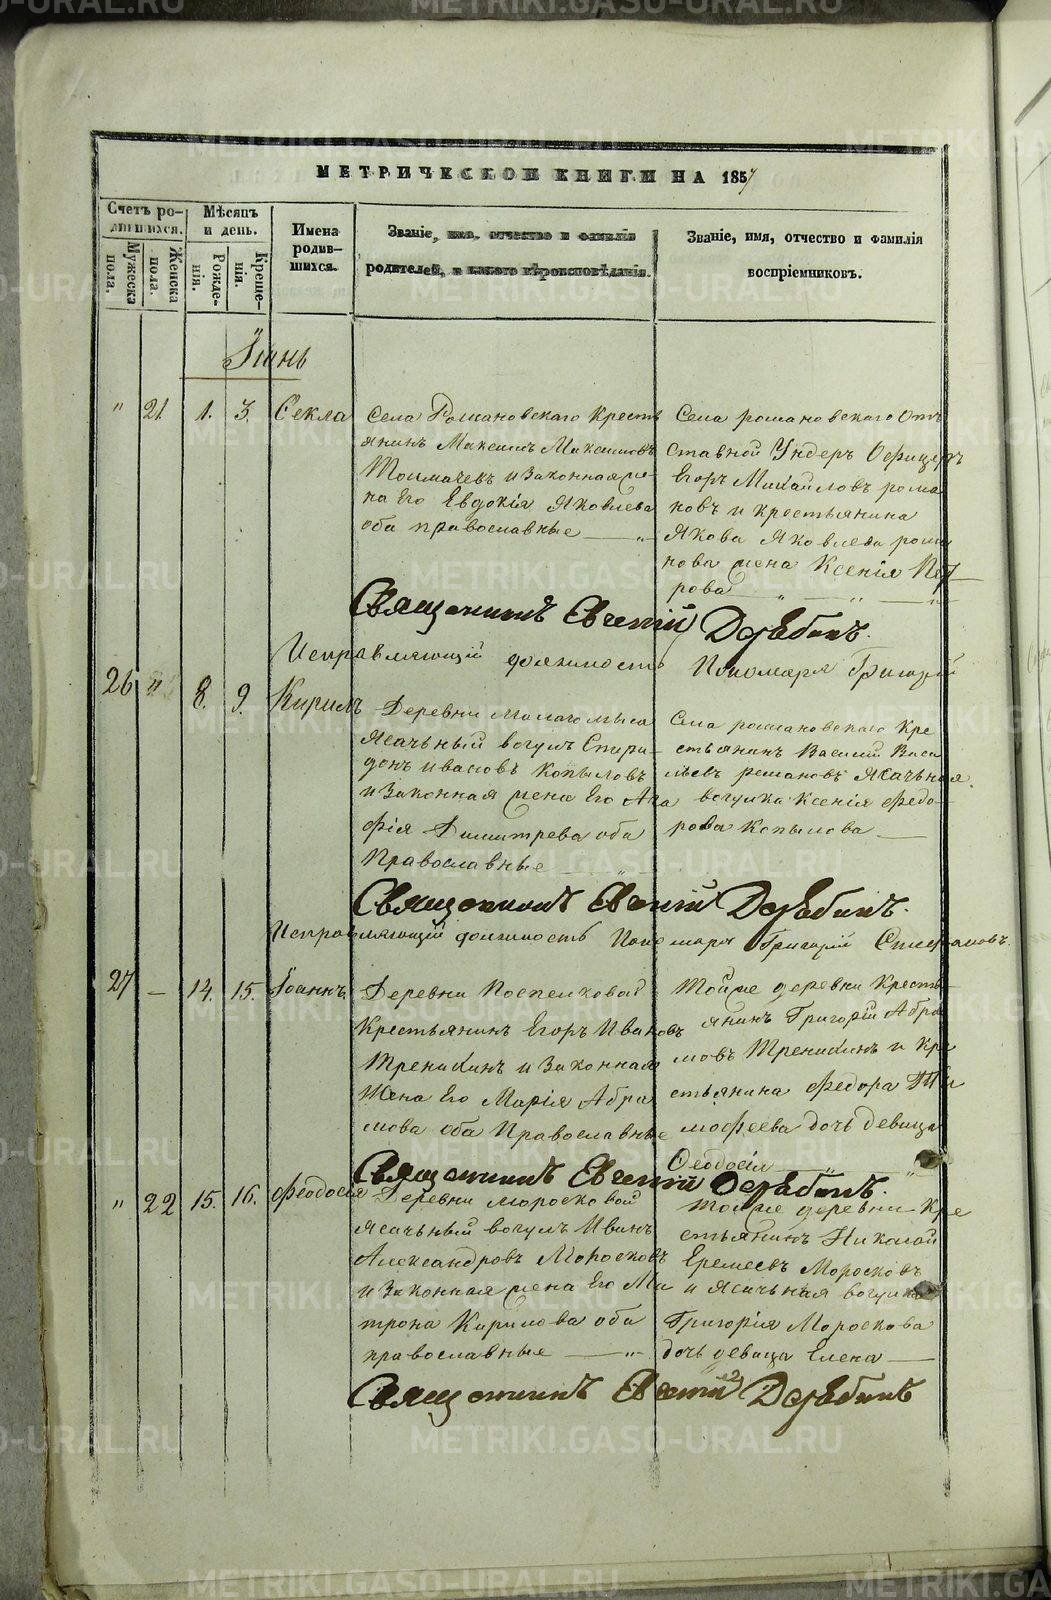 МЕТРИЧЕСКОЙ КНИГИ НА 1857
Счетъ ро-
дившихся.
Мѣсяцъ
и день.
Имена
родив-
шихся.
Званіе, имя, отчество и фамилія
родителей, и какого вѣроисповѣданія.
Званіе, имя, отчество и фамилія
воспріемниковъ.
Мужеска
пола.
Женска
пола.
Рожде-
нія.
Креще-
нія.
Іюнь
" 21. 1. 3. Ѳекла
Села Романовскаго Кресть
янинъ Максимъ Максимовъ
и Законная же
на Его Евдокія Яковлева
оба православные
Села романовскаго От
ставной Ундеръ Офицеръ
Егоръ Михайловъ рома
новъ и крестьянина
Якова Яковлева рома
нова жена Ксенія Пет
рова
Священникъ Евгеній Дерябинъ.
Исправляющій должность Пономаря Григорій
26 " 8. 9. Кирилъ
Деревни
Ясачный вогулъ Спири-
донъ Ивановъ Копыловъ
и Законная жена Его Ага
фія Димитрева оба
Православные
Села романовскаго Кре
стьянинъ Василій Васи
льевъ романовъ Ясачная
вогулка Ксенія Федо-
рова Копылова
Священникъ Евгеній Дерябинъ.
Исправляющій должность Пономаря Григорій Стефановъ.
27 — 14. 15. Іоаннъ.
Деревни
Крестьянинъ Егоръ Ивановъ
Тренихинъ и Законная
Жена Его Марія Абра
мова оба Православные
Тойже деревни Кресть-
янинъ Григорій Абра
мовъ Тренихинъ и Кре
стьянина Федора Ти
мофеева дочь девица
Феодосія
Священникъ Евгеній Дерябинъ.
" 22 15. 16. Феодосія
Деревни Моросковой
Ясачный вогулъ Иванъ
Александровъ Моросковъ
и Законная жена Его Ма
трона Кирилова оба
православные
Тойже деревни Кре
стьянинъ Николай
Еремеевъ Моросковъ
и Ясачная вогулка
Григорія Мороскова
дочь девица Елена
Священникъ Евгеній Дерябинъ
METRIKI.GASO-URAL.RU